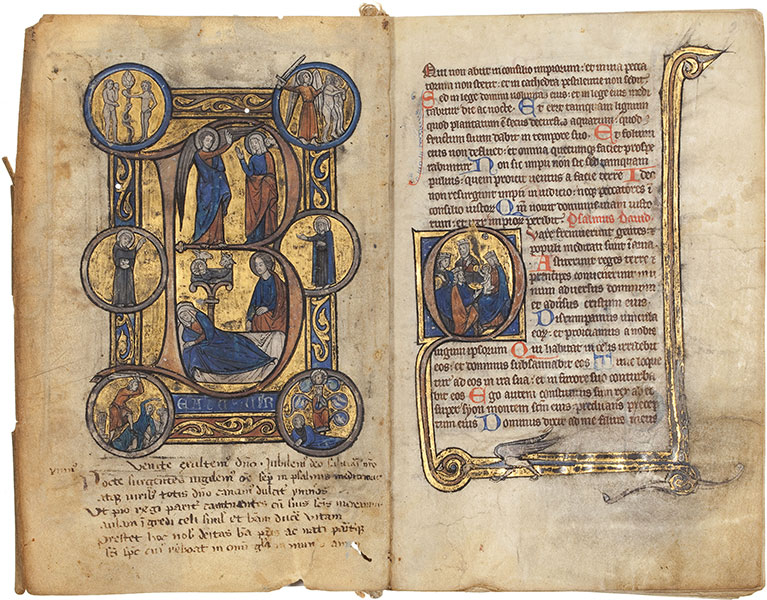 EATUS VIR
Venite exultem dño . Iubilem deo salutari nr̃o
Nocte surgentes vigilem oẽs semp in psalmis meditemur
atque virib totis dño canam dulcit ymnos
Ut pio regi parit canentes cũ suis scis mereamur
aulam ingredi celi simul et bam ducẽ vitam
prestet hoc nob deitas ba pris ac nati
reboat in omi gla mun
Qui non abiit in consilio impiorum : et in uia pecca
torum non stetit : et in cathedra pestilentie non sedit
Sed in lege domini uoluntas eius : et in lege eius medi
tabitur die ac nocte . Et erit tamquam lignum
quod plantatum ẽ secus decursus aquarum : quod
fructum suum dabit in tempore suo . Et folium
eius non defluet : et omnia quecunq; faciet prospe
rabuntur Non sic impii non sic sed tamquam
puluis : quem proicit uentus a facie terre Ideo
non resurgunt impii in iudicio : neq; peccatores ĩ
consilio iustoꝝ . Qm̃ nouit dominus uiam iusto
rum : et iter impioꝝ peribit . Psalmus dauid .
Quare fremuerunt gentes : et
populi meditati sunt inania .
Astiterunt reges terre et
principes conuenerunt in u
num aduersus dominum
et aduersus cristum eius .
Disrumpamus uincula
eoꝝ : et proiciamus a nobis
iugum ipsorum Qui habitat in celis irridebit
eos : et dominus subsannabit eos Tunc loque
tur ad eos in ira sua : et in furore suo conturba
bit eos Ego autem constitutus sum rex ab eo
super syon montem scm̃ eius : predicans precep
tum eius Dominus dixit ad me filius meus